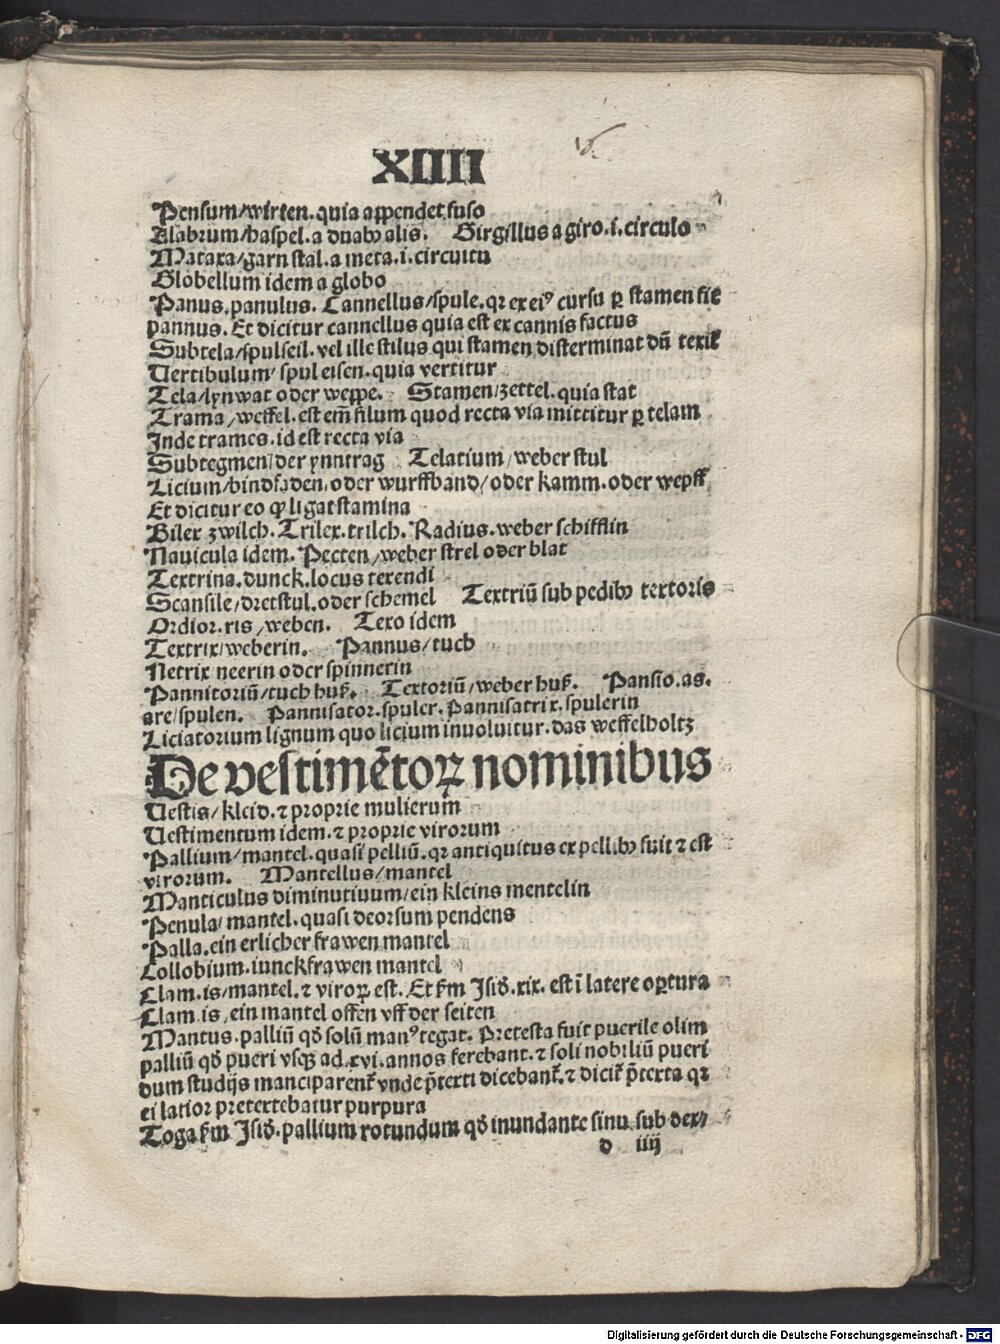 XIIII
Pensum/wirten. quia appendet fuso
Alabrum/haspel. a duabꝰ alis. Girgillus a giro .i. circulo
Mataxa/garn stal. a meta .i. circuitu
Globellum idem a globo
Panus. panulus. Cannellus/spule. qꝛ ex eiꝰ cursu ꝑ stamen fit
pannus. Et dicitur cannellus quia est ex cannis factus
Subtela/spulseil. vel ille stilus qui stamen disterminat dū texit᷑
Vertibulum/spul eisen. quia vertitur
Tela/lynwat oder weppe. Stamen/zettel. quia stat
Trama/weffel. est em̄ filum quod recta via mittitur ꝑ telam
Inde trames. id est recta via
Subtegmen/der ynntrag Telarium/weber stul
Licium/bindfaden/oder wurffband/oder kamm. oder wepff
Et dicitur eo ꝙ ligat stamina
Bilex zwilch. Trilex. trilch. Radius. weber schifflin
Nauicula idem. Pecten/weber strel oder blat
Textrina. dunck. locus texendi
Scansile/dretstul. oder schemel Textriū sub pedibꝰ textoris
Ordior. ris/weben. Texo idem
Textrix/weberin. Pannus/tuch
Netrix neerin oder spinnerin
Pannitoriū/tuch huß. Textoriū/weber huß. Panso. as.
are/spulen. Pannisator. spuler. Pannisatrix. spulerin
Liciatorium lignum quo licium inuoluitur. das weffelholtz
De vestimētoꝝ nominibus
Vestis/kleid. ⁊ proprie mulierum
Vestimentum idem. ⁊ proprie virorum
Pallium/mantel. quasi pelliū. qꝛ antiquitus ex pellibꝰ fuit ⁊ est
virorum. Mantellus/mantel
Manticulus diminutiuum/ein kleins mentelin
Penula/mantel. quasi deorsum pendens
Palla. ein erlicher frawen mantel
Collobium. iunckfrawen mantel
Clam. is/mantel. ⁊ viroꝝ est. Et ẜm Isid̄. xix. est ī latere oꝑtura
Clam. is, ein mantel offen vff der seiten
Mantus. palliū qd̄ solū manꝰ tegat. Pretesta fuit puerile olim
palliū qd̄ pueri vsqꝫ ad .xvi. annos ferebant. ⁊ soli nobiliū pueri
dum studijs manciparent᷑ vnde p̄texti dicebant᷑. ⁊ dicit᷑ p̄texta qꝛ
ei latior pretextebatur purpura
Toga ẜm Isid̄. pallium rotundum qd̄ inundante sinu sub dex/
d iiij
Digitalisierung gefördert durch die Deutsche Forschungsgemeinschaft - DFG